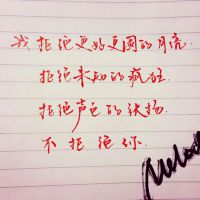 我拒绝更好更圆的月亮
拒绝未知的疯狂
拒绝声色的张扬
不拒绝你